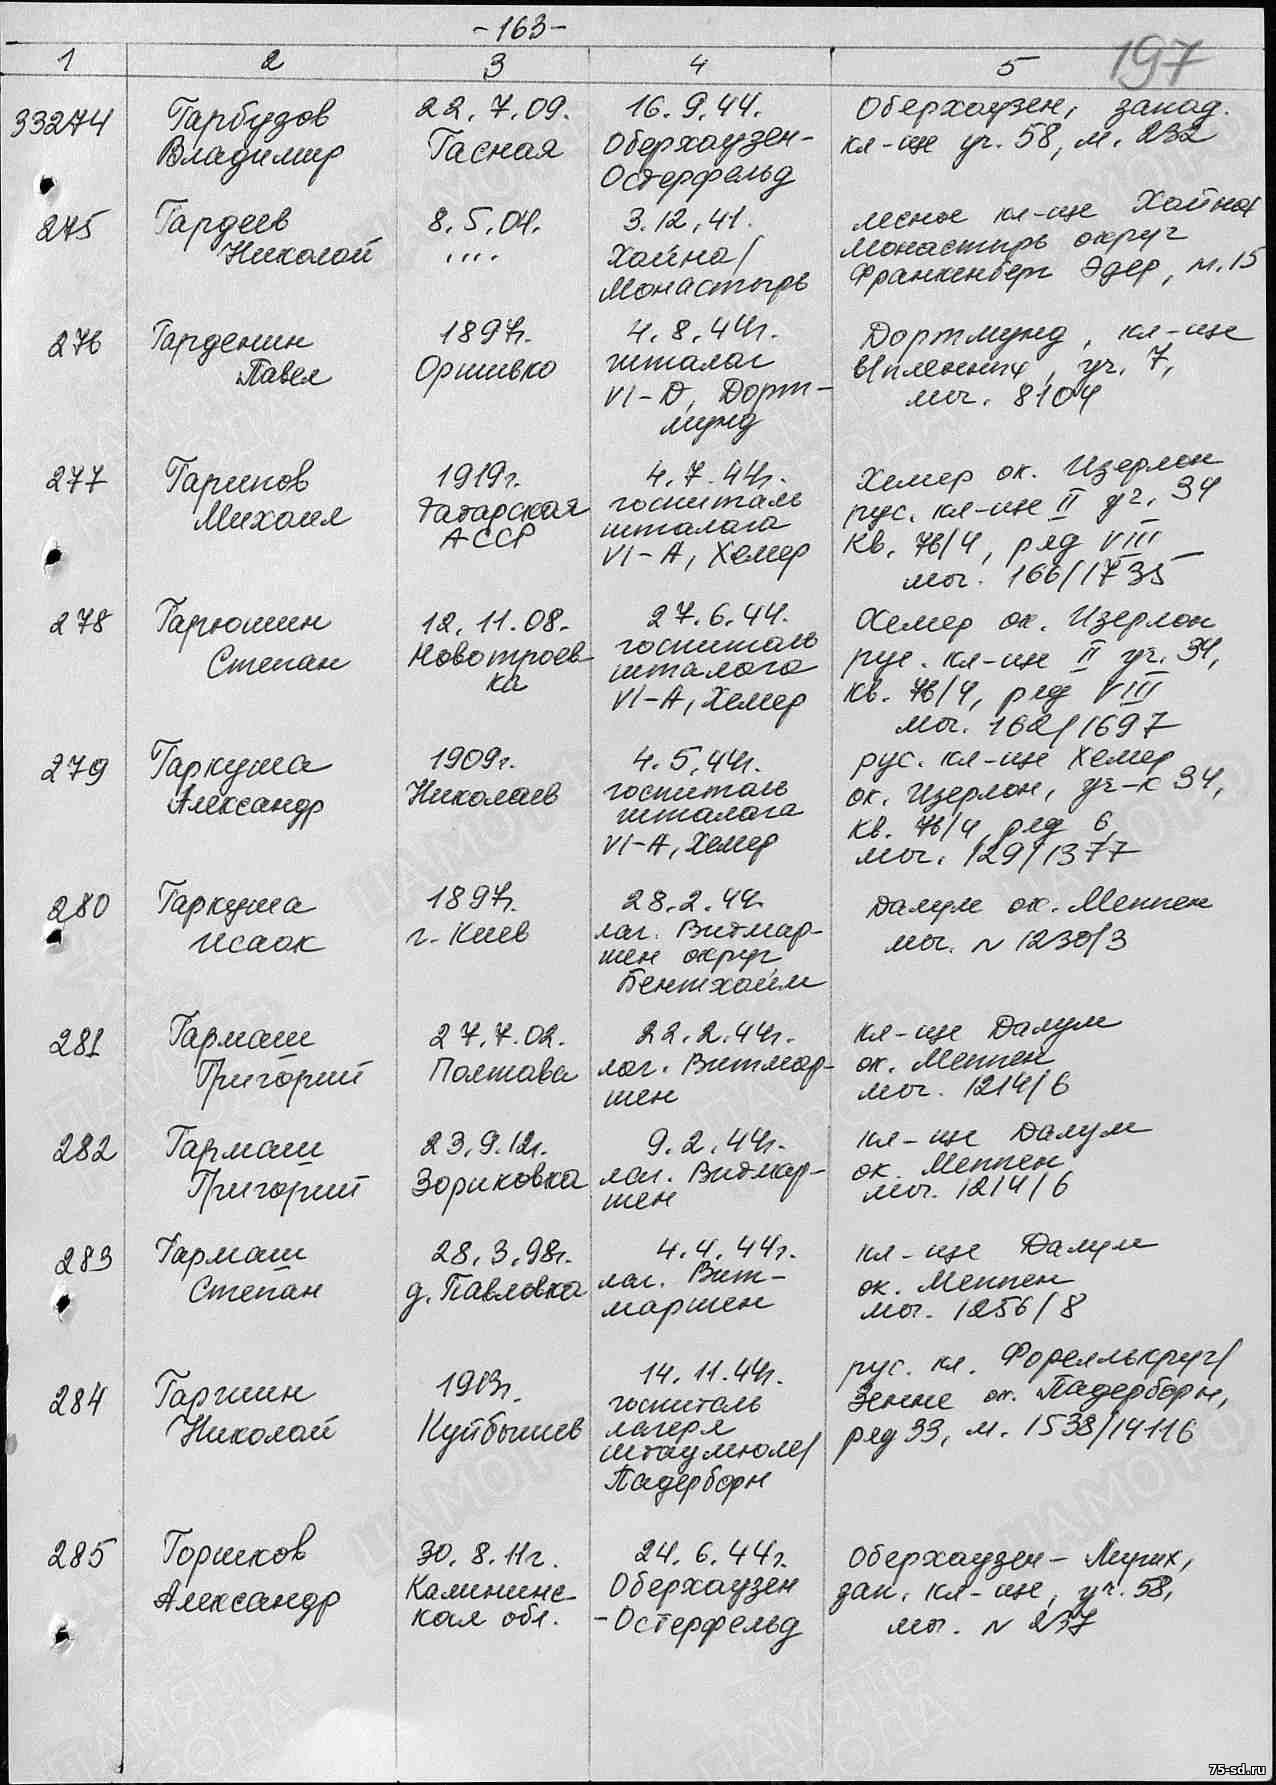 -163-
197
1 2 3 4 5
33274 Гарбузов Владимир
22.7.09. Гасная
16.9.44. Оберхаузен-Остерфельд
Оберхаузен, запад.
кл-ще уч. 58, м. 232
275 Гардеев Николай
8.5.04. ....
3.12.41. Хайна/Монастырь
лесное кл-ще Хайна/
монастырь округ
Франкенберг Эдер, м. 15
276 Гарденин Павел
1897г. Оршивко
4.8.44г. шталаг
VI-D, Дорт-
мунд
Дортмунд, кл-ще
в/пленных, уч. 7,
мог. 8104
277 Гарипов Михаил
1919г. Татарская
АССР
4.7.44г. госпиталь
шталага
VI-А, Хемер
Хемер ок. Изерлон
рус. кл-ще II уч. 34
кв. 7в/4, ряд VIII
мог. 166/1735
278 Гарюшин Степан
12.11.08. Новотроев-
ка
27.6.44. госпиталь
шталага
VI-А, Хемер
Хемер ок. Изерлон
рус. кл-ще II уч. 34,
кв. 7в/4, ряд VIII
мог. 162/1697
279 Гаркуша Александр
1909г. Николаев
4.5.44г. госпиталь
шталага
VI-А, Хемер
рус. кл-ще Хемер
ок. Изерлон, уч-к 34,
кв. 7в/4, ряд 6,
мог. 129/1377
280 Гаркуша Исаак
1897г. г. Киев
28.2.44. лаг. Витмар-
шен округ
Бентхайм
Далум ок. Меппен
мог. N 1230/3
281 Гармаш Григорий
27.7.02. Полтава
22.2.44г. лаг. Витмар-
шен
кл-ще Далум
ок. Меппен
мог. 1214/6
282 Гармаш Григорий
23.9.12г. Зориковка
9.2.44г. лаг. Витмар-
шен
кл-ще Далум
ок. Меппен
мог. 1214/6
283 Гармаш Степан
28.3.98г. д. Павловка
4.4.44г. лаг. Вит-
маршен
кл-ще Далум
ок. Меппен
мог. 1256/8
284 Гаршин Николай
1913г. Куйбышев
14.11.44г. госпиталь
лагеря
Штаумюле/
Падерборн
рус. кл. Фореллькруг/
Зенне ок. Падерборн,
ряд 33, м. 1538/14116
285 Горшков Александр
30.8.11г. Калининс-
кая обл.
24.6.44г. Оберхаузен
-Остерфельд
Оберхаузен - Лирих,
зап. кл-ще, уч. 58,
мог. N 237
75-sd.ru